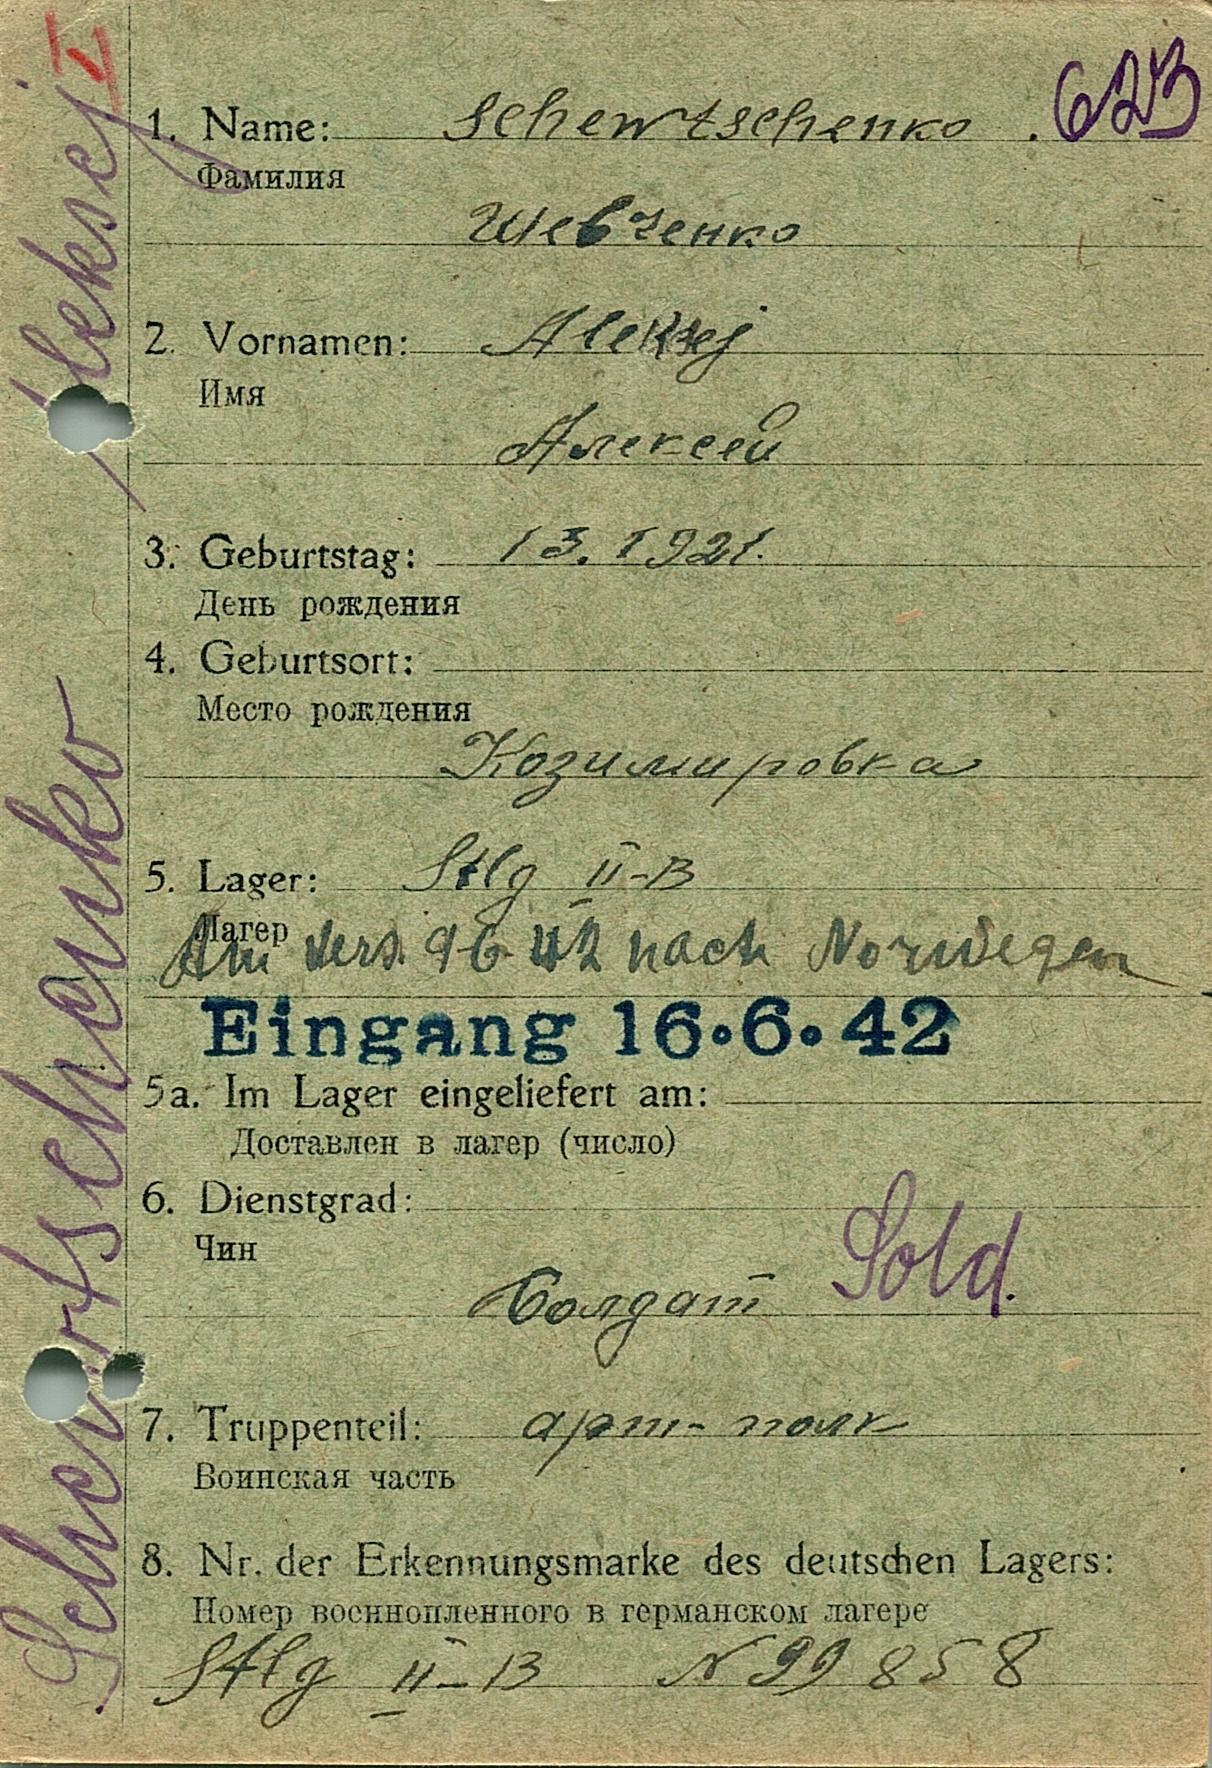 V
623
1. Name: Schewtschenko.
Фамилия
Шевченко
2. Vornamen: Aleksej
Имя
Алексей
3. Geburtstag: 13. I 921.
День рождения
4. Geburtsort:
Место рождения
Козимировка
5. Lager: Stlg II-B
Лагер
Am vers. 9 6 42 nach Norwegen
Eingang 16.6.42
5a. Im Lager eingeliefert am:
Доставлен в лагер (число)
6. Dienstgrad:
Чин
Sold.
Солдат
7. Truppenteil: арт-полк
Воинская часть
8. Nr. der Erkennungsmarke des deutschen Lagers:
Номер военнопленного в германском лагере
Stlg II-B N 99 858
Schewtschenko Aleksej